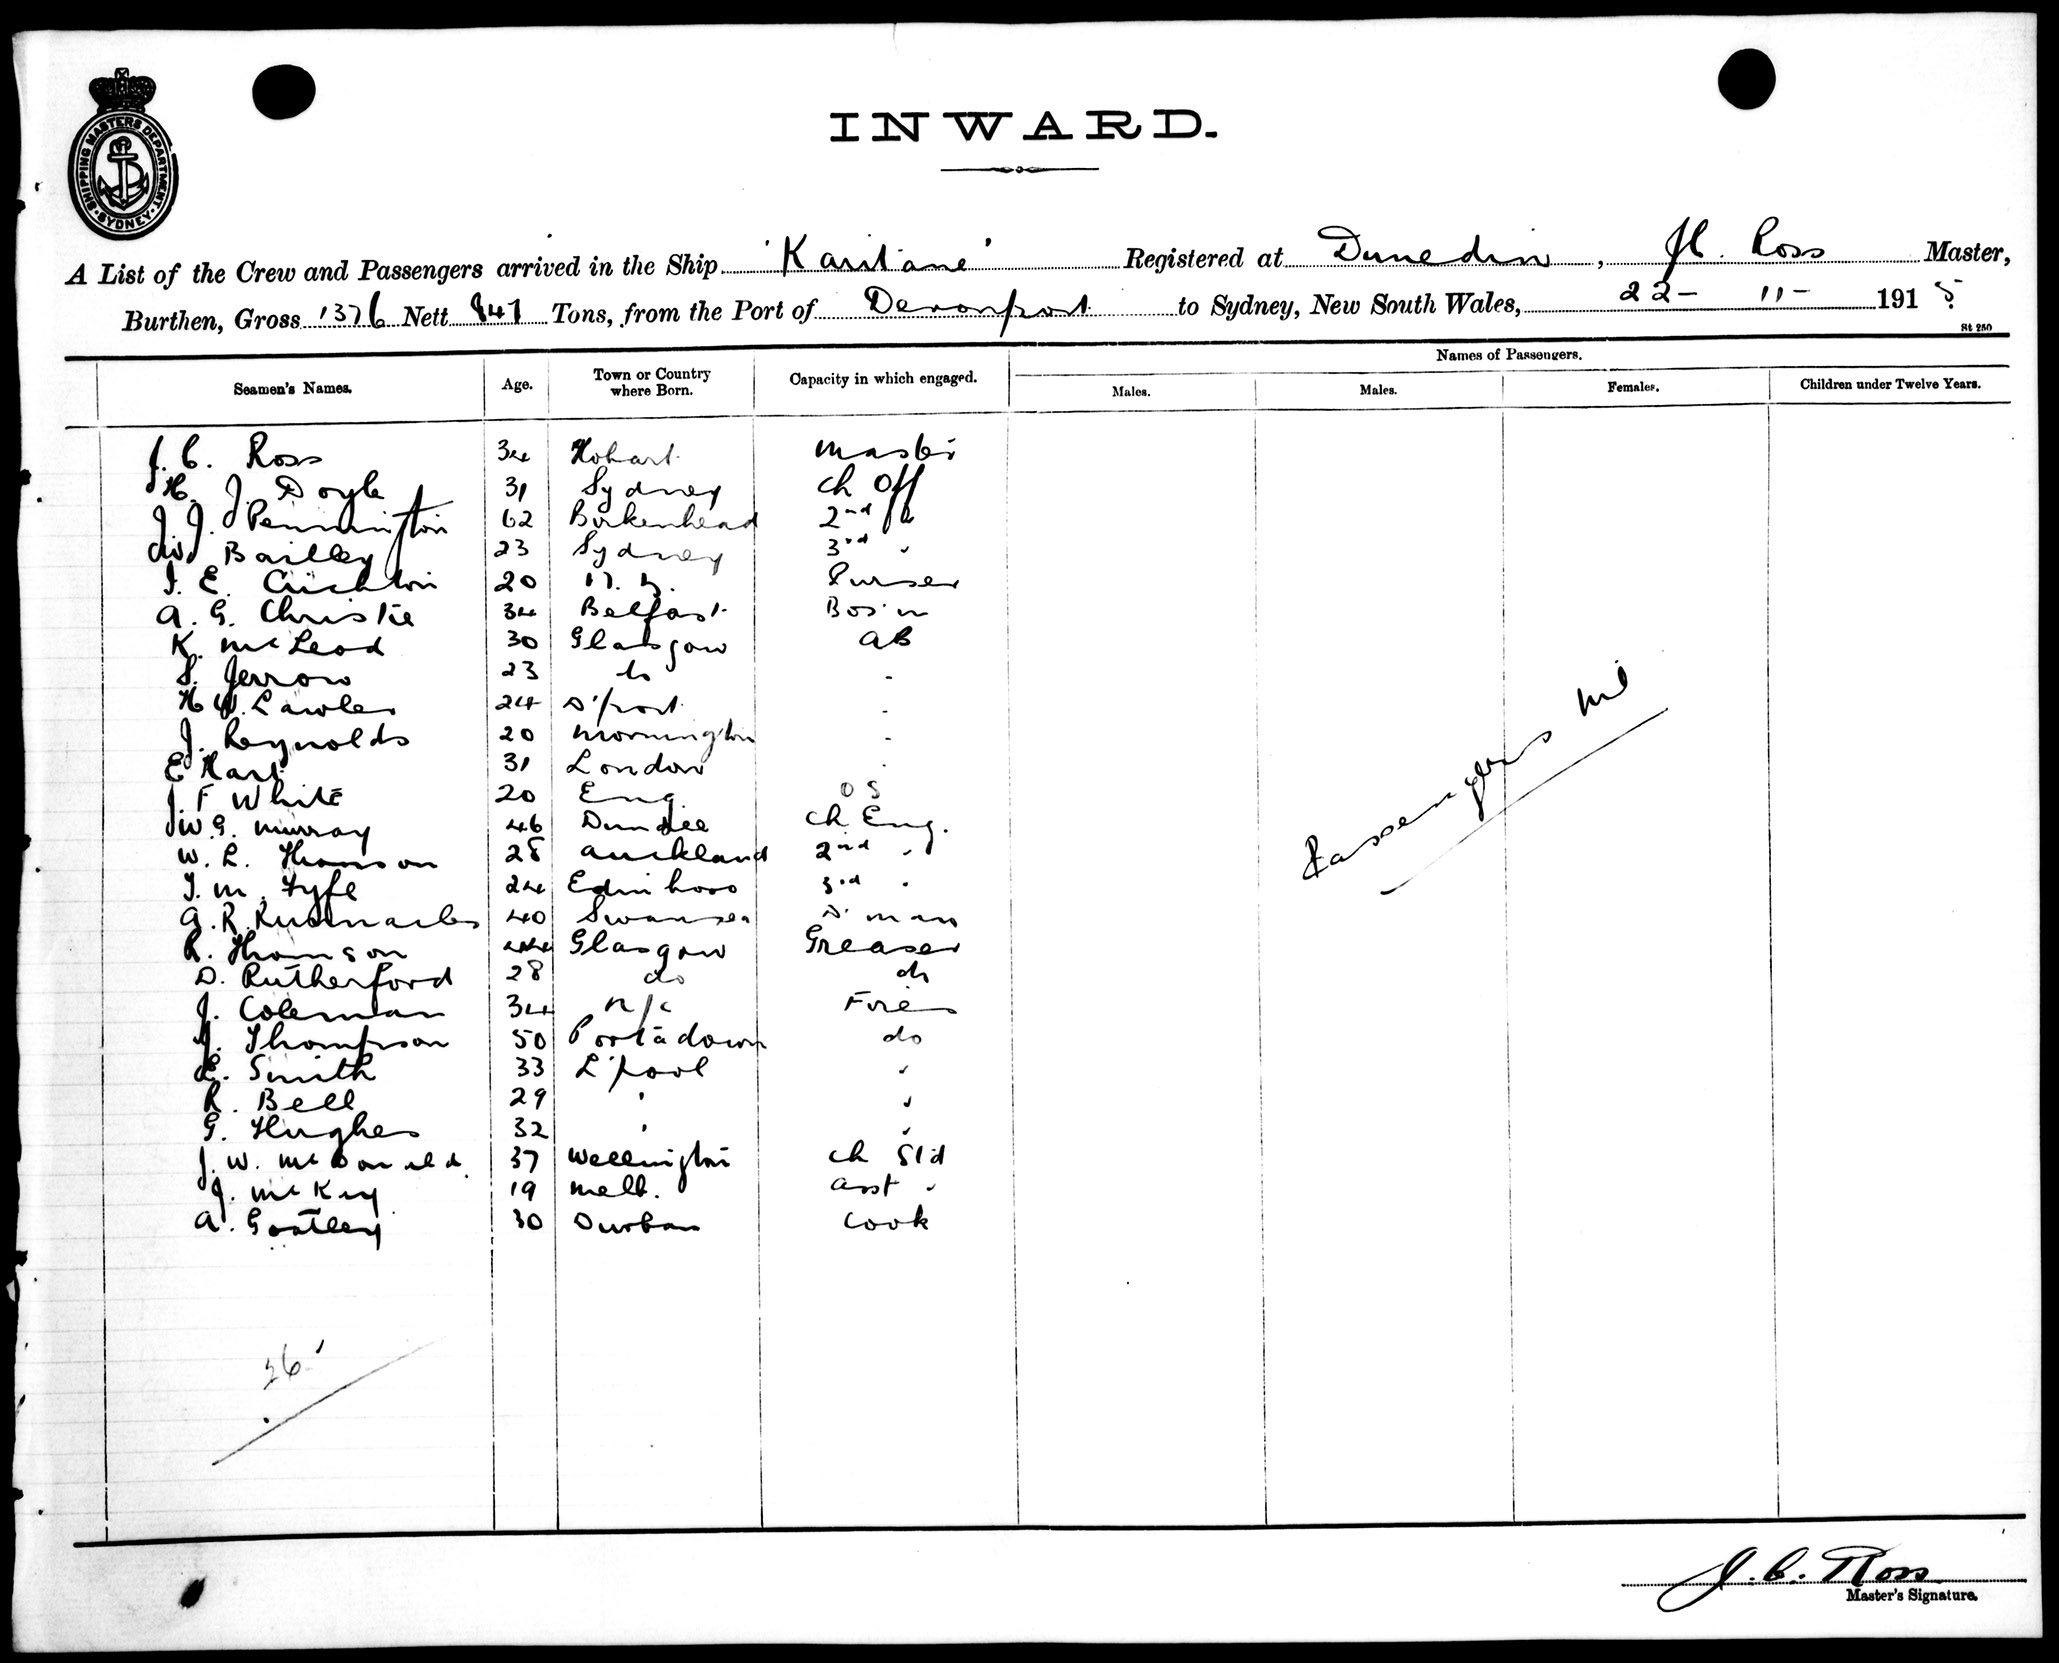 SHIPPING MASTERS DEPARTMENT
SYDNEY
INWARD.
A List of the Crew and Passengers arrived in the Ship 'Karitane' Registered at Dunedin, J.C. Ross Master,
Burthen, Gross 1376 Nett 847 Tons, from the Port of Devonport to Sydney, New South Wales, 22- 11- 1915
St 250
Names of Passengers.
Seamen's Names. Age. Town or Country where Born. Capacity in which engaged. Males. Males. Females. Children under Twelve Years.
J. C. Ross 34 Hobart Master
H. J. Doyle 31 Sydney Ch Off
J. J. Pennington 62 Birkenhead 2nd "
W J Bailley 23 Sydney 3rd "
J. E. Crichton 20 N. Z. Purser
A. G. Christie 34 Belfast Bos'n
K. McLeod 30 Glasgow AB
S. Jerrow 23 do
H W. Lawler 24 D'port
J. Reynolds 20 Mornington
E Hart 31 London
J. F White 20 Eng. OS
W. G. Murray 46 Dundee Ch Eng.
W. L. Thomson 28 Auckland 2nd "
J. M. Fyfe 24 Edinboro 3rd "
A. R. 40 Swansea D'man
R. Thomson 44 Glasgow Greaser
D. Rutherford 28 do do
J. Coleman 34 N/C
J. Thompson 50 Portadown do
E. Smith 33 L'pool "
R. Bell 29 " "
G. Hughes 32 " "
J. W. McDonald. 37 Wellington Ch Std
J. McKey 19 Melb. Asst "
A. Goatley 30 Durban Cook
Passengers Nil
26
J. C. Ross
Master's Signature.